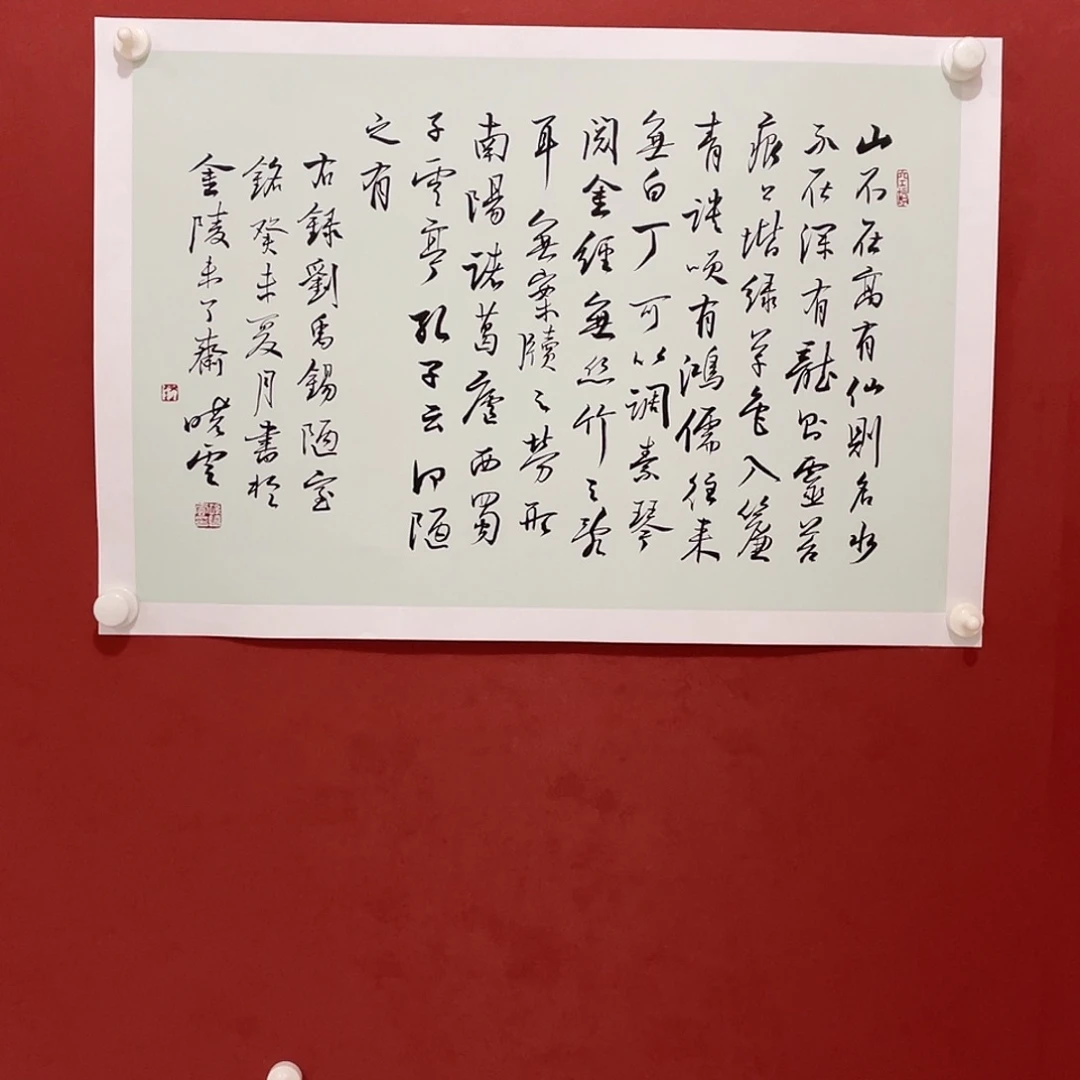 山不在高有仙則名水
不在深有龍則靈苔
痕上堦緑草色入簾
青談咲有鴻儒往来
無白丁可以調素琴
閲金經無丝竹之亂
耳無案牘之勞形
南陽諸葛廬西蜀
子雲亭孔子云何陋
之有
右録劉禹錫陋室
銘癸未夏月書於
金陵未了齋曉雲